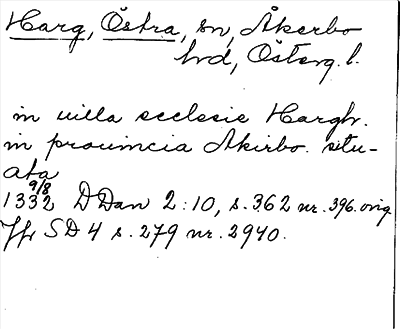 Harg, Östra, sn, Åkerbo
hd, Österg. l.
in uilla ecclesie Hargh.
in prouincia Akirbo. situ-
ata
9/8
1332 DDan 2:10, s. 362 nr. 396. orig.
Jfr SD 4 s. 279 nr. 2940.